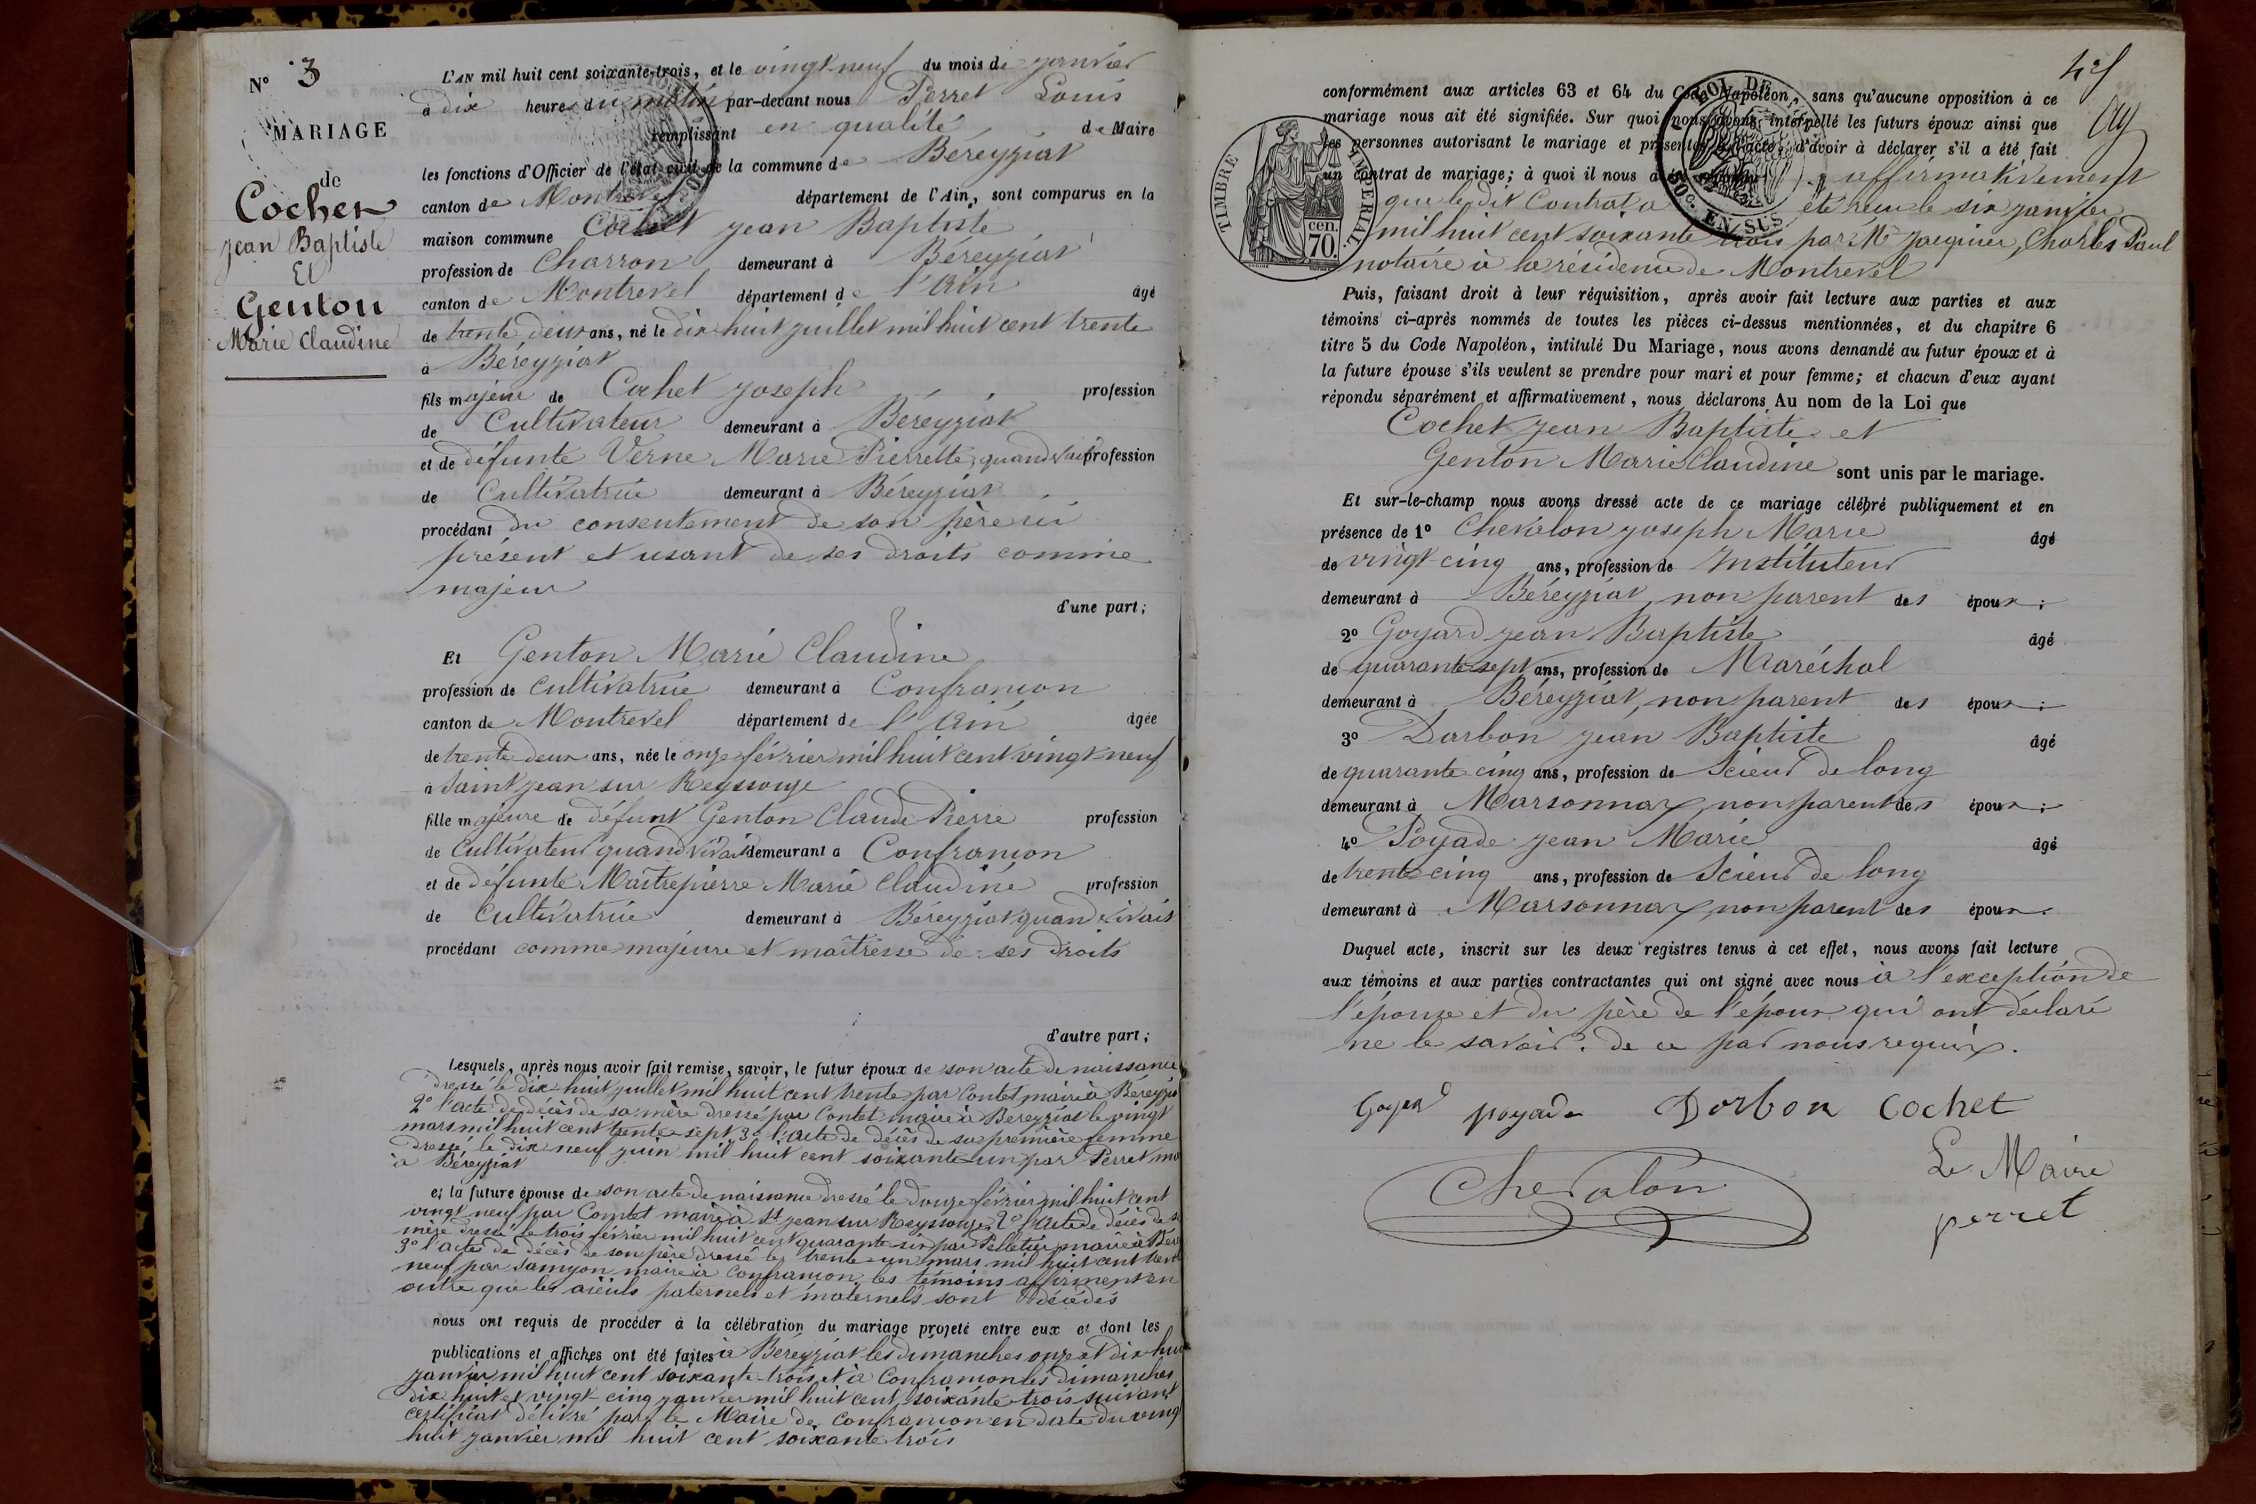 N° 3
MARIAGE
de
Cochet
Jean Baptiste
Et
Genton
Marie Claudine
L'AN mil huit cent soixante-trois, et le vingt-neuf du mois de janvier
à dix heures du matin par-devant nous Perret Louis
remplissant en qualité de Maire
les fonctions d'Officier de l'état civil de la commune de Béreyziat
canton de Montrevel département de l'Ain, sont comparus en la
maison commune Cochet Jean Baptiste
profession de Charron demeurant à Béreyziat
canton de Montrevel département de l'Ain âgé
de trente deux ans, né le dix huit juillet mil huit cent trente
à Béreyziat
fils majeur de Cochet Joseph profession
de Cultivateur demeurant à Béreyziat
et de défunte Verne Marie Pierrette, quand vivait profession
de Cultivatrice demeurant à Béreyziat
procédant du consentement de son père ici
présent et usant de ses droits comme
majeur
d'une part;
Et Genton Marie Claudine
profession de cultivatrice demeurant à Confrançon
canton de Montrevel département de l'Ain âgée
de trente deux ans, née le onze février mil huit cent vingt-neuf
à Saint Jean sur Reyssouze
fille majeure de défunt Genton Claude Pierre profession
de Cultivateur quand vivait demeurant à Confrançon
et de défunte Maîtrepierre Marie Claudine profession
de Cultivatrice demeurant à Béreyziat quand vivait
procédant comme majeure et maîtresse de ses droits
d'autre part;
Lesquels, après nous avoir fait remise, savoir, le futur époux de son acte de naissance
dressé le dix-huit juillet mil huit cent trente par Contet maire à Béreyziat
2° l'acte de décès de sa mère dressé par Contet maire à Béreyziat le vingt
mars mil huit cent trente-sept 3° l'acte de décès de sa première femme
dressé le dix neuf juin mil huit cent soixante-un par Perret
à Béreyziat
et la future épouse de son acte de naissance dressé le douze février mil huit cent
vingt neuf par Comtet maire à St Jean sur Reyssouze, 2° l'acte de décès de sa
mère dressé le trois février mil huit cent quarante six par Pelletier maire à Bér
3° l'acte de décès de son père dressé le trente-un mars mil huit cent trente
neuf par Samyon maire à Confrançon, les témoins affirment en
outre que les aïeuls paternels et maternels sont décédés
nous ont requis de procéder à la célébration du mariage projeté entre eux et dont les
publications et affiches ont été faites à Béreyziat les dimanches onze et dix-huit
janvier mil huit cent soixante-trois et à Confrançon les dimanches
dix huit et vingt-cinq janvier mil huit cent soixante-trois suivant
certificat délivré par le Maire de Confrançon en date du vingt
huit janvier mil huit cent soixante trois
conformément aux articles 63 et 64 du Code Napoléon, sans qu'aucune opposition à ce
mariage nous ait été signifiée. Sur quoi nous avons interpellé les futurs époux ainsi que
les personnes autorisant le mariage et présentes à l'acte, d'avoir à déclarer s'il a été fait
un contrat de mariage; à quoi il nous a été répondu affirmativement
que le dit Contrat a été reçu le six janvier
mil huit cent soixante trois par Me Jacquier, Charles Paul
notaire à la résidence de Montrevel
TIMBRE IMPERIAL
cen.
70.
50c EN SUS
Puis, faisant droit à leur réquisition, après avoir fait lecture aux parties et aux
témoins ci-après nommés de toutes les pièces ci-dessus mentionnées, et du chapitre 6
titre 5 du Code Napoléon, intitulé Du Mariage, nous avons demandé au futur époux et à
la future épouse s'ils veulent se prendre pour mari et pour femme; et chacun d'eux ayant
répondu séparément et affirmativement, nous déclarons Au nom de la Loi que
Cochet Jean Baptiste et
Genton Marie Claudine sont unis par le mariage.
Et sur-le-champ nous avons dressé acte de ce mariage célébré publiquement et en
présence de 1° Chevalon Joseph Marie âgé
de vingt-cinq ans, profession de Instituteur
demeurant à Béreyziat, non parent des époux;
2° Goyard Jean Baptiste âgé
de quarante-sept ans, profession de Maréchal
demeurant à Béreyziat, non parent des époux;
3° Darbon Jean Baptiste âgé
de quarante cinq ans, profession de Scieur de long
demeurant à Marsonnax, non parent des époux;
4° Poyade Jean Marie âgé
de trente cinq ans, profession de Scieur de long
demeurant à Marsonnax, non parent des époux.
Duquel acte, inscrit sur les deux registres tenus à cet effet, nous avons fait lecture
aux témoins et aux parties contractantes qui ont signé avec nous à l'exception de
l'épouse et du père de l'époux qui ont déclaré
ne le savoir. de ce par nous requis.
Goyard poyade Dorbon Cochet
Chevalon
Le Maire
perret